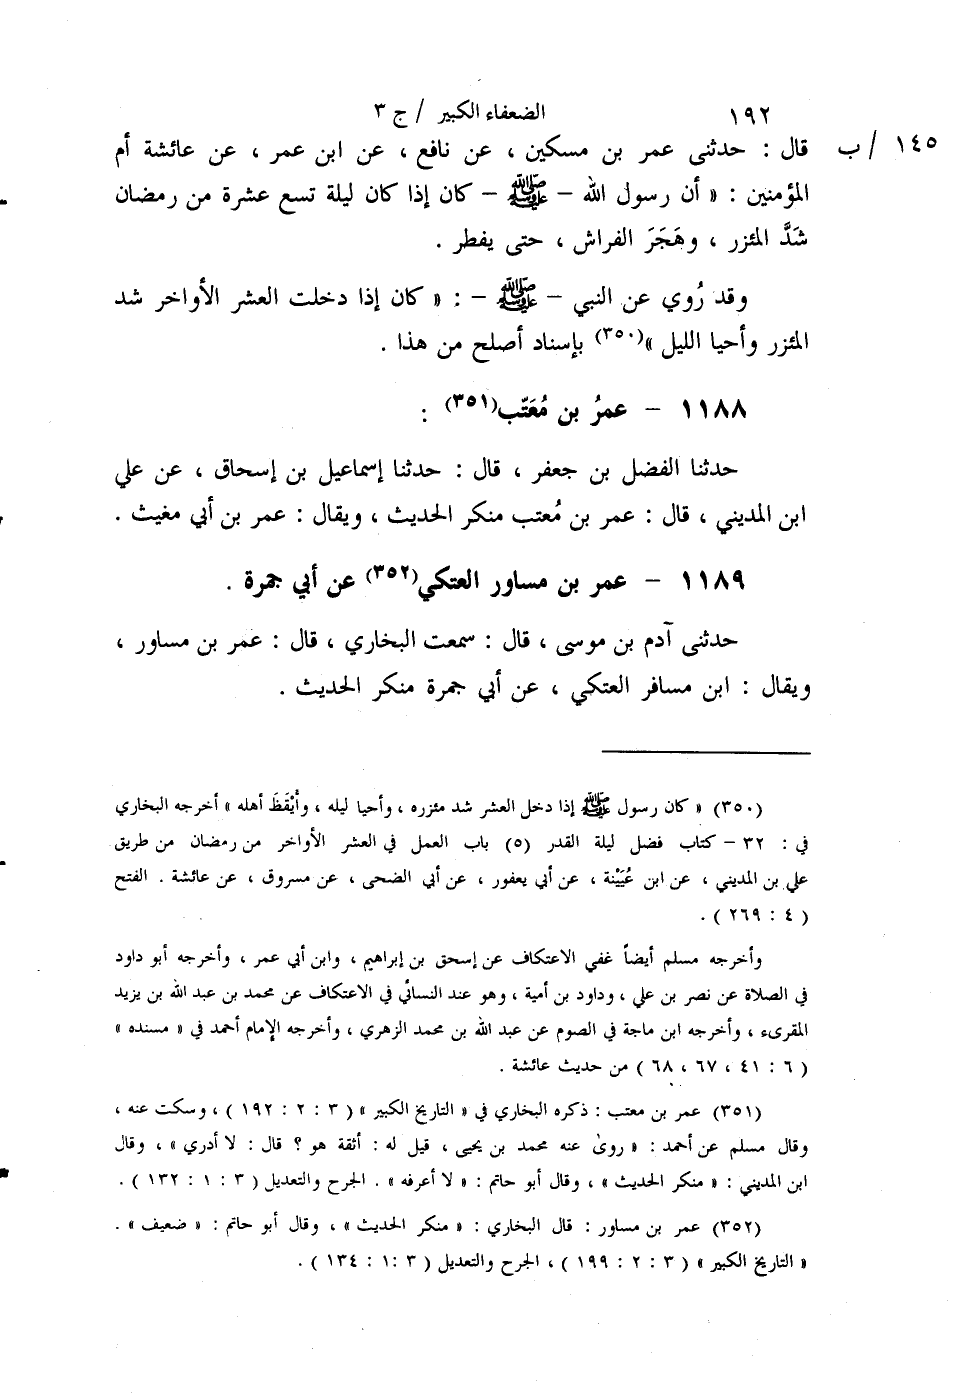 ١٩٢ الضعفاء الكبير / ج ٣
١٤٥ / ب قال : حدثنى عمر بن مسكين ، عن نافع ، عن ابن عمر ، عن عائشة أم
المؤمنين : « أن رسول الله – ﷺ – كان إذا كان ليلة تسع عشرة من رمضان
شَدَّ المئزر ، وهَجَرَ الفراش ، حتى يفطر .
وقد رُوي عن النبي – ﷺ – : « كان إذا دخلت العشر الأواخر شد
المئزر وأحيا الليل »(٣٥٠) بإسناد أصلح من هذا .
١١٨٨ – عمرُ بن مُعَتّب(٣٥١) :
حدثنا الفضل بن جعفر ، قال : حدثنا إسماعيل بن إسحاق ، عن علي
ابن المديني ، قال : عمر بن مُعتب منكر الحديث ، ويقال : عمر بن أبي مغيث .
١١٨٩ – عمر بن مساور العتكي(٣٥٢) عن أبي جمرة .
حدثنى آدم بن موسى ، قال : سمعت البخاري ، قال : عمر بن مساور ،
ويقال : ابن مسافر العتكي ، عن أبي جمرة منكر الحديث .
(٣٥٠) « كان رسول ﷺ إذا دخل العشر شد مئزره ، وأحيا ليله ، وأَيْقَظَ أهله » أخرجه البخاري
في : ٣٢ – كتاب فضل ليلة القدر (٥) باب العمل في العشر الأواخر من رمضان من طريق
علي بن المديني ، عن ابن عُيَيْنة ، عن أبي يعفور ، عن أبي الضحى ، عن مسروق ، عن عائشة . الفتح
( ٤ : ٢٦٩ ) .
وأخرجه مسلم أيضاً غفي الاعتكاف عن إسحق بن إبراهيم ، وابن أبي عمر ، وأخرجه أبو داود
في الصلاة عن نصر بن علي ، وداود بن أمية ، وهو عند النسائي في الاعتكاف عن محمد بن عبد الله بن يزيد
المقرىء ، وأخرجه ابن ماجة في الصوم عن عبد الله بن محمد الزهري ، وأخرجه الإمام أحمد في « مسنده »
( ٦ : ٤١ ، ٦٧ ، ٦٨ ) من حديث عائشة .
(٣٥١) عمر بن معتب : ذكره البخاري في « التاريخ الكبير » ( ٣ : ٢ : ١٩٢ ) ، وسكت عنه ،
وقال مسلم عن أحمد : « روىٰ عنه محمد بن يحيى ، قيل له : أثقة هو ؟ قال : لا أدري » ، وقال
ابن المديني : « منكر الحديث » ، وقال أبو حاتم : « لا أعرفه » . الجرح والتعديل ( ٣ : ١ : ١٣٢ ) .
(٣٥٢) عمر بن مساور : قال البخاري : « منكر الحديث » ، وقال أبو حاتم : « ضعيف » .
« التاريخ الكبير » ( ٣ : ٢ : ١٩٩ ) ، الجرح والتعديل ( ٣ :١ : ١٣٤ ) .